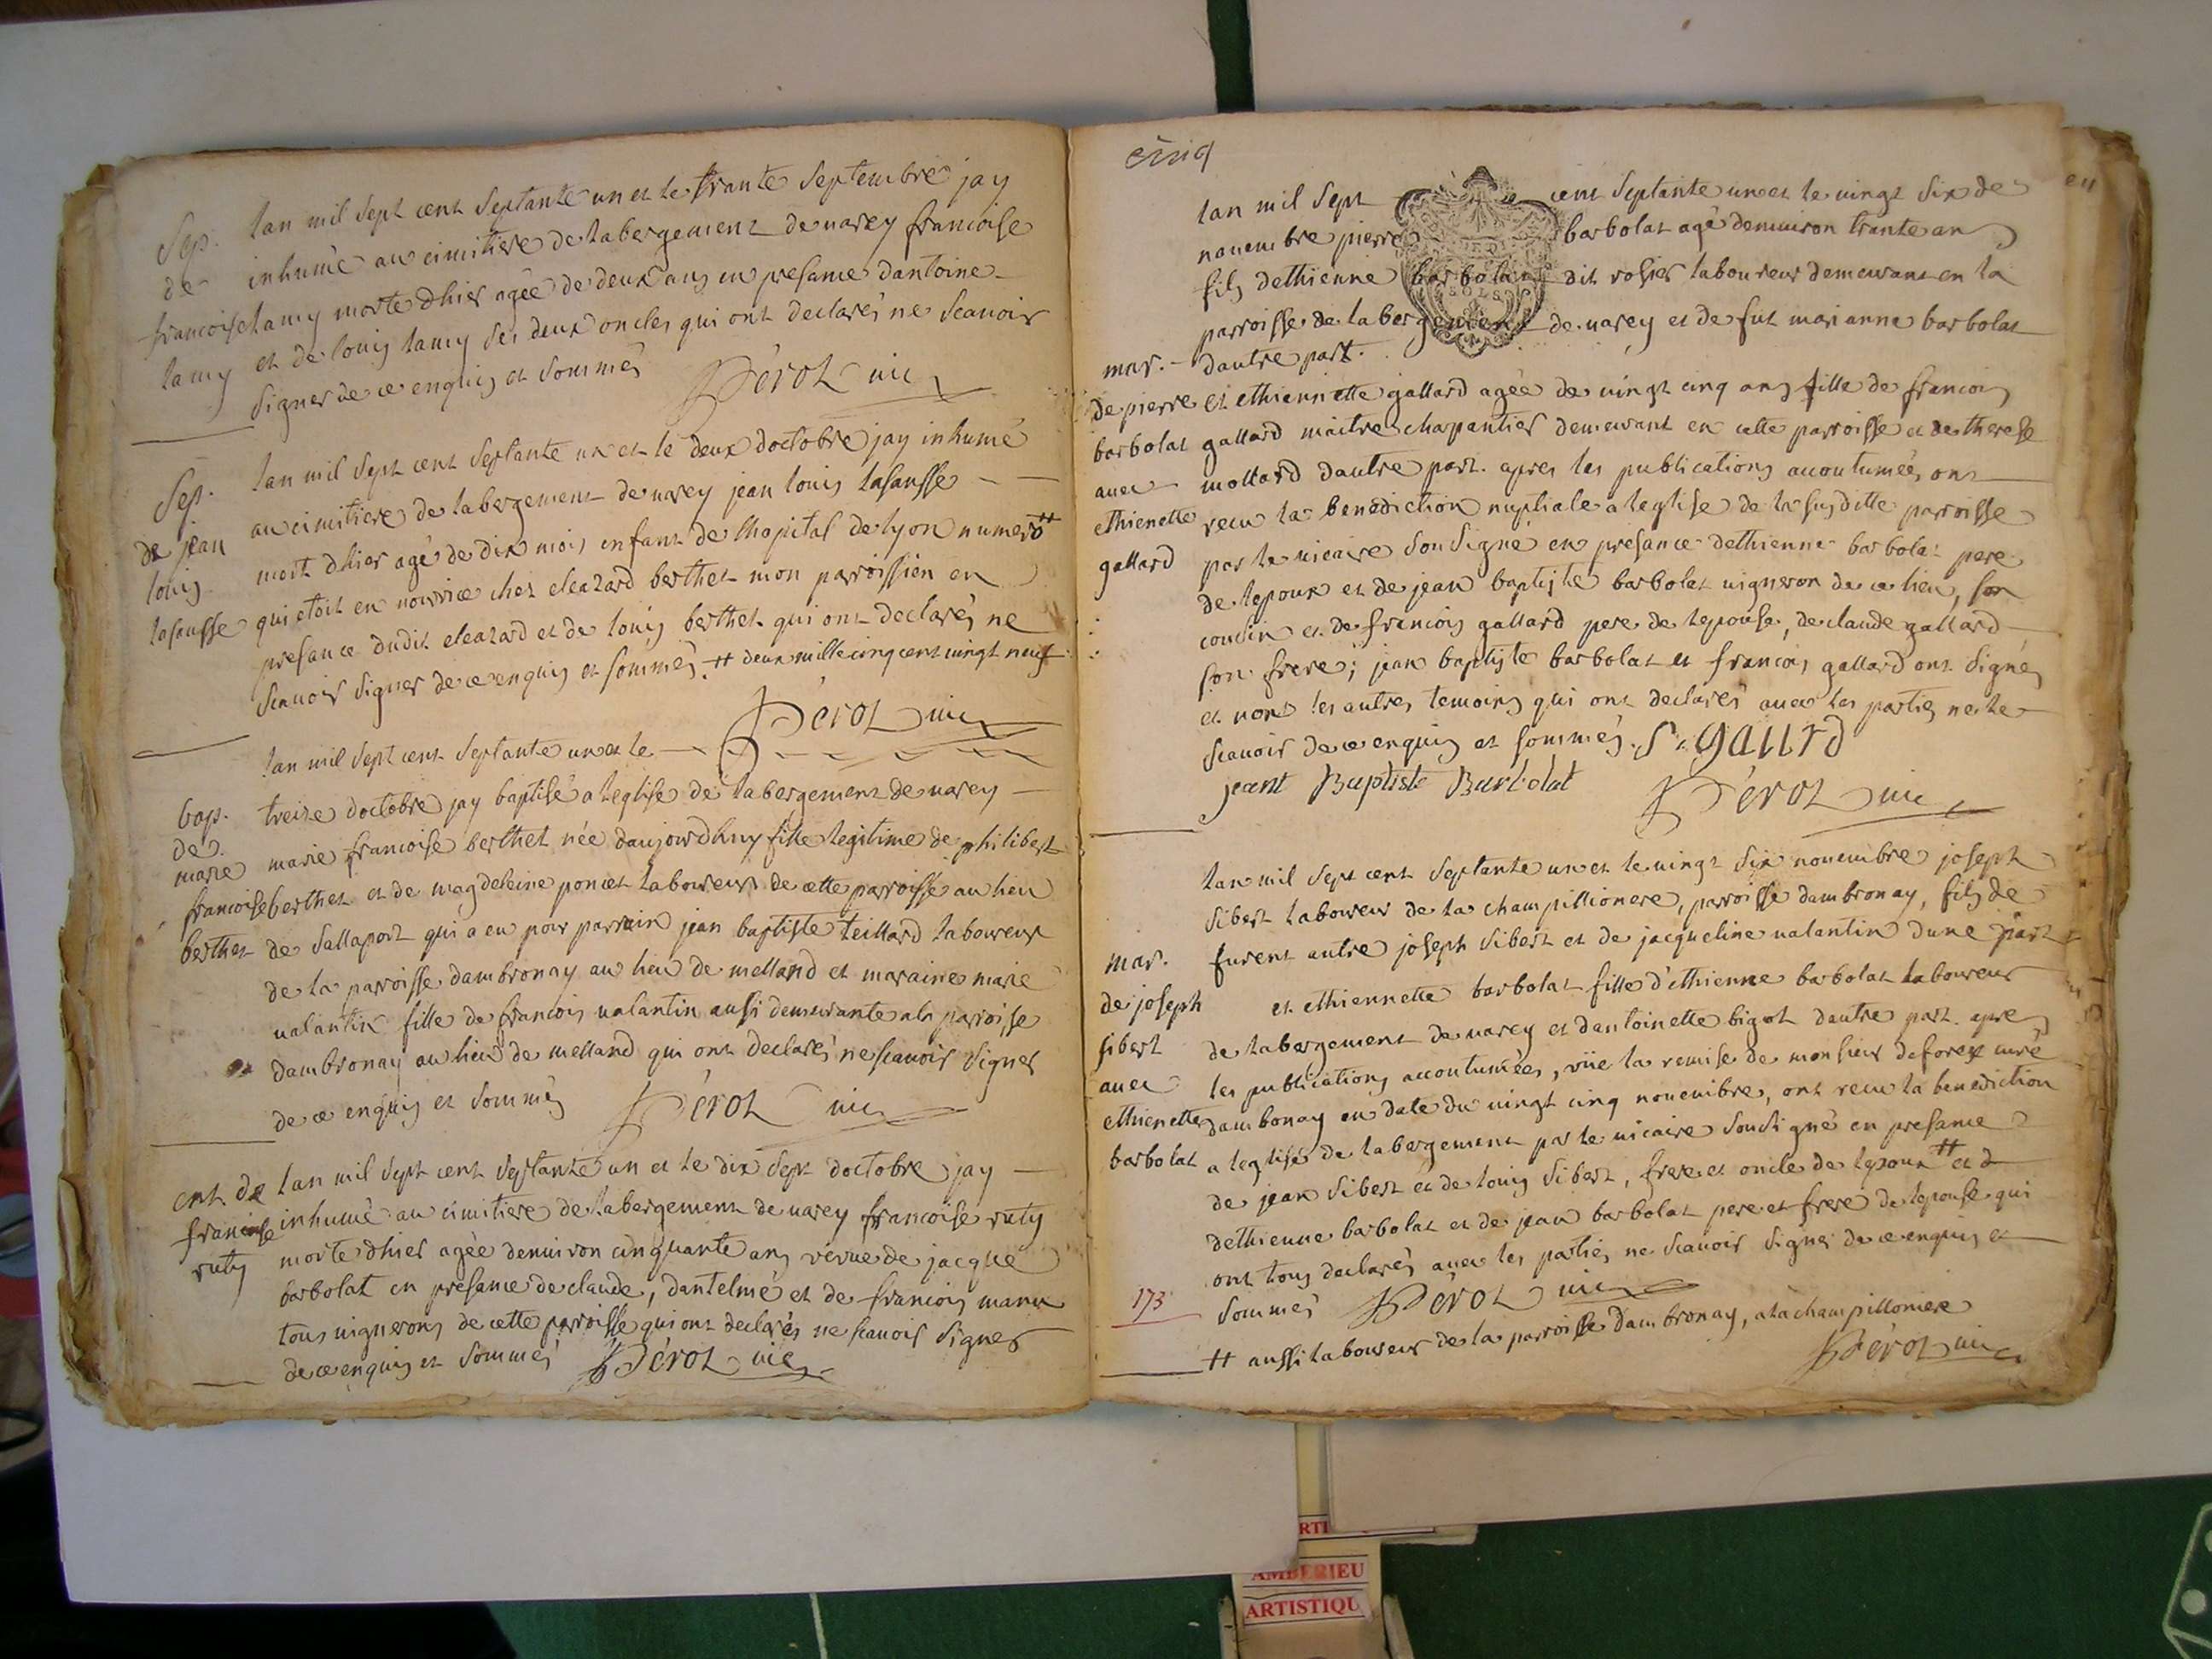 Sep.
de
francoise
lamy
lan mil sept cent septante un et le trante septembre jay
inhumé au cimitiere de labergement de varey francoise
lamy morte dhier agée de deux ans en presance dantoine
et de louis lamy ses deux oncles qui ont declarés ne scavoir
signer de ce enquis et sommés Pérot vic
Sep.
de jean
louis
lasausse
lan mil sept cent septante un et le deux doctobre jay inhumé
au cimitiere de labergement de varey jean louis lasausse
mort dhier agé de dix mois enfant de lhopital de lyon numero #
qui etoit en nourrice chez eleazard berthet mon parroissien en
presance dudit eleazard et de louis berthet qui ont declarés ne
scavoir signer de ce enquis et sommés # deux mille cinq cent vingt neuf
Pérot vic
bap.
de
marie
francoise
berthet
lan mil sept cent septante un et le
treize doctobre jay baptisé a leglise de labergement de varey
marie francoise berthet née daujourdhuy fille legitime de philibert
berthet et de magdeleine poncet laboureur de cette parroisse au lieu
de sallaport qui a eu pour parrain jean baptiste teillard laboureur
de la parroisse dambronay au lieu de melland et maraine marie
valantin fille de francois valantin aussi demeurante a la parroisse
dambronay au lieu de melland qui ont declarés ne scavoir signer
de ce enquis et sommés Pérot vic
ent. de
francoise
ruty
lan mil sept cent septante un et le dix sept doctobre jay
inhumé au cimitiere de labergement de varey francoise ruty
morte dhier agée denviron cinquante ans vevue de jacque
barbolat en presance de claude, dantelme et de francois
tous vignerons de cette parroisse qui ont declarés ne scavoir signer
de ce enquis et sommés Pérot vic
cinq
mar.
de pierre
barbolat
avec
ethienette
gallard
lan mil sept cent septante un et le vingt six de
novembre pierre barbolat agé denviron trante ans
fils dethienne barbolat dit rosier laboureur demeurant en la
parroisse de labergement de varey et de fut marianne barbolat
dautre part.
et ethiennette gallard agée de vingt cinq ans fille de francois
gallard maitre chapantier demeurant en cette parroisse et de therese
mollard dautre part. apres les publications accoutumées ont
recu la benédiction nuptiale a leglise de la susditte parroisse
par le vicaire sousigné en presance dethienne barbolat pere
de lepoux et de jean baptiste barbolat vigneron de ce lieu, son
cousin et de francois gallard pere de lepouse, de claude gallard
son frere; jean baptiste barbolat et francois gallard ont signés
et non les autres temoins qui ont declarés avec les parties ne le
scavoir de ce enquis et sommés.
jeant Baptiste Barbolat Pérot vic
mar.
de joseph
sibert
avec
ethienette
barbolat
lan mil sept cent septante un et le vingt six novembre joseph
sibert laboureur de la champillionere, parroisse dambronay, fils de
furent autre joseph sibert et de jacqueline valantin dune part
et ethiennette barbolat fille d'ethienne barbolat laboureur
de labergement de varey et dantoinette bigot dautre part. apres
les publications accoutumées, vüe la remise de monsieur deforex curé
dambonay en date du vingt cinq novembre, ont recu la benediction
a leglise de labergement par le vicaire sousigné en presance
de jean sibert et de louis sibert, frere et oncle de lepoux # et d
dethienne barbolat et de jean barbolat pere et frere de lepouse qui
ont tous declarés avec les parties ne scavoir signer de ce enquis et
sommés Pérot vic
173
# aussi laboureur de la parroisse dambronay, a la champillonere
Pérot vic
AMBERIEU
ARTISTIQU